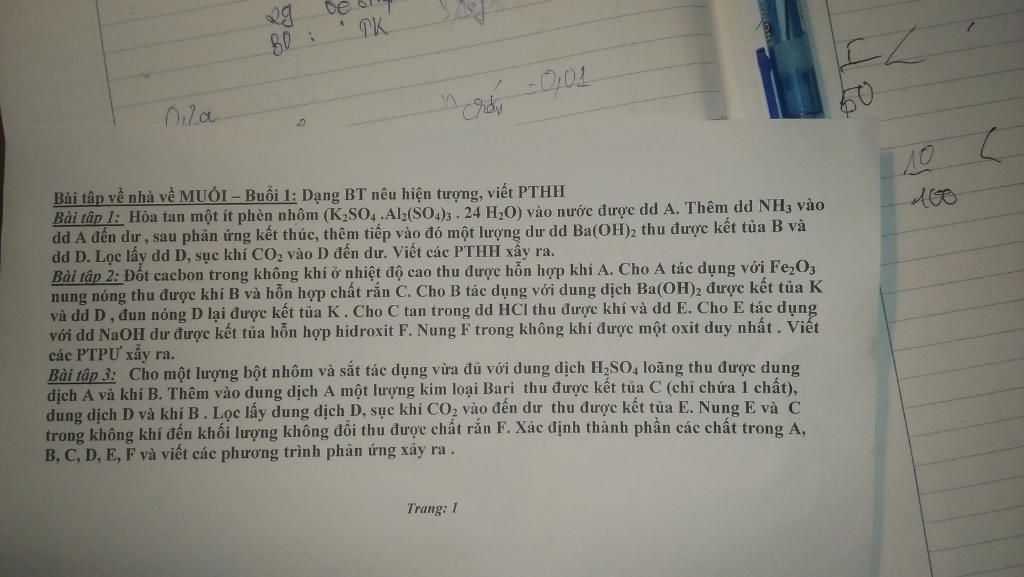 2g
80 : TK
0,2a
n rắn = 0,01
50
10
100
Bài tập về nhà về MUỐI – Buổi 1: Dạng BT nêu hiện tượng, viết PTHH
Bài tập 1: Hòa tan một ít phèn nhôm (K₂SO₄ .Al₂(SO₄)₃ . 24 H₂O) vào nước được dd A. Thêm dd NH₃ vào
dd A đến dư , sau phản ứng kết thúc, thêm tiếp vào đó một lượng dư dd Ba(OH)₂ thu được kết tủa B và
dd D. Lọc lấy dd D, sục khí CO₂ vào D đến dư. Viết các PTHH xẩy ra.
Bài tập 2: Đốt cacbon trong không khí ở nhiệt độ cao thu được hỗn hợp khí A. Cho A tác dụng với Fe₂O₃
nung nóng thu được khí B và hỗn hợp chất rắn C. Cho B tác dụng với dung dịch Ba(OH)₂ được kết tủa K
và dd D , đun nóng D lại được kết tủa K . Cho C tan trong dd HCl thu được khí và dd E. Cho E tác dụng
với dd NaOH dư được kết tủa hỗn hợp hidroxit F. Nung F trong không khí được một oxit duy nhất . Viết
các PTPƯ xẩy ra.
Bài tập 3: Cho một lượng bột nhôm và sắt tác dụng vừa đủ với dung dịch H₂SO₄ loãng thu được dung
dịch A và khí B. Thêm vào dung dịch A một lượng kim loại Bari thu được kết tủa C (chỉ chứa 1 chất),
dung dịch D và khí B . Lọc lấy dung dịch D, sục khí CO₂ vào đến dư thu được kết tủa E. Nung E và C
trong không khí đến khối lượng không đổi thu được chất rắn F. Xác định thành phần các chất trong A,
B, C, D, E, F và viết các phương trình phản ứng xảy ra .
Trang: 1